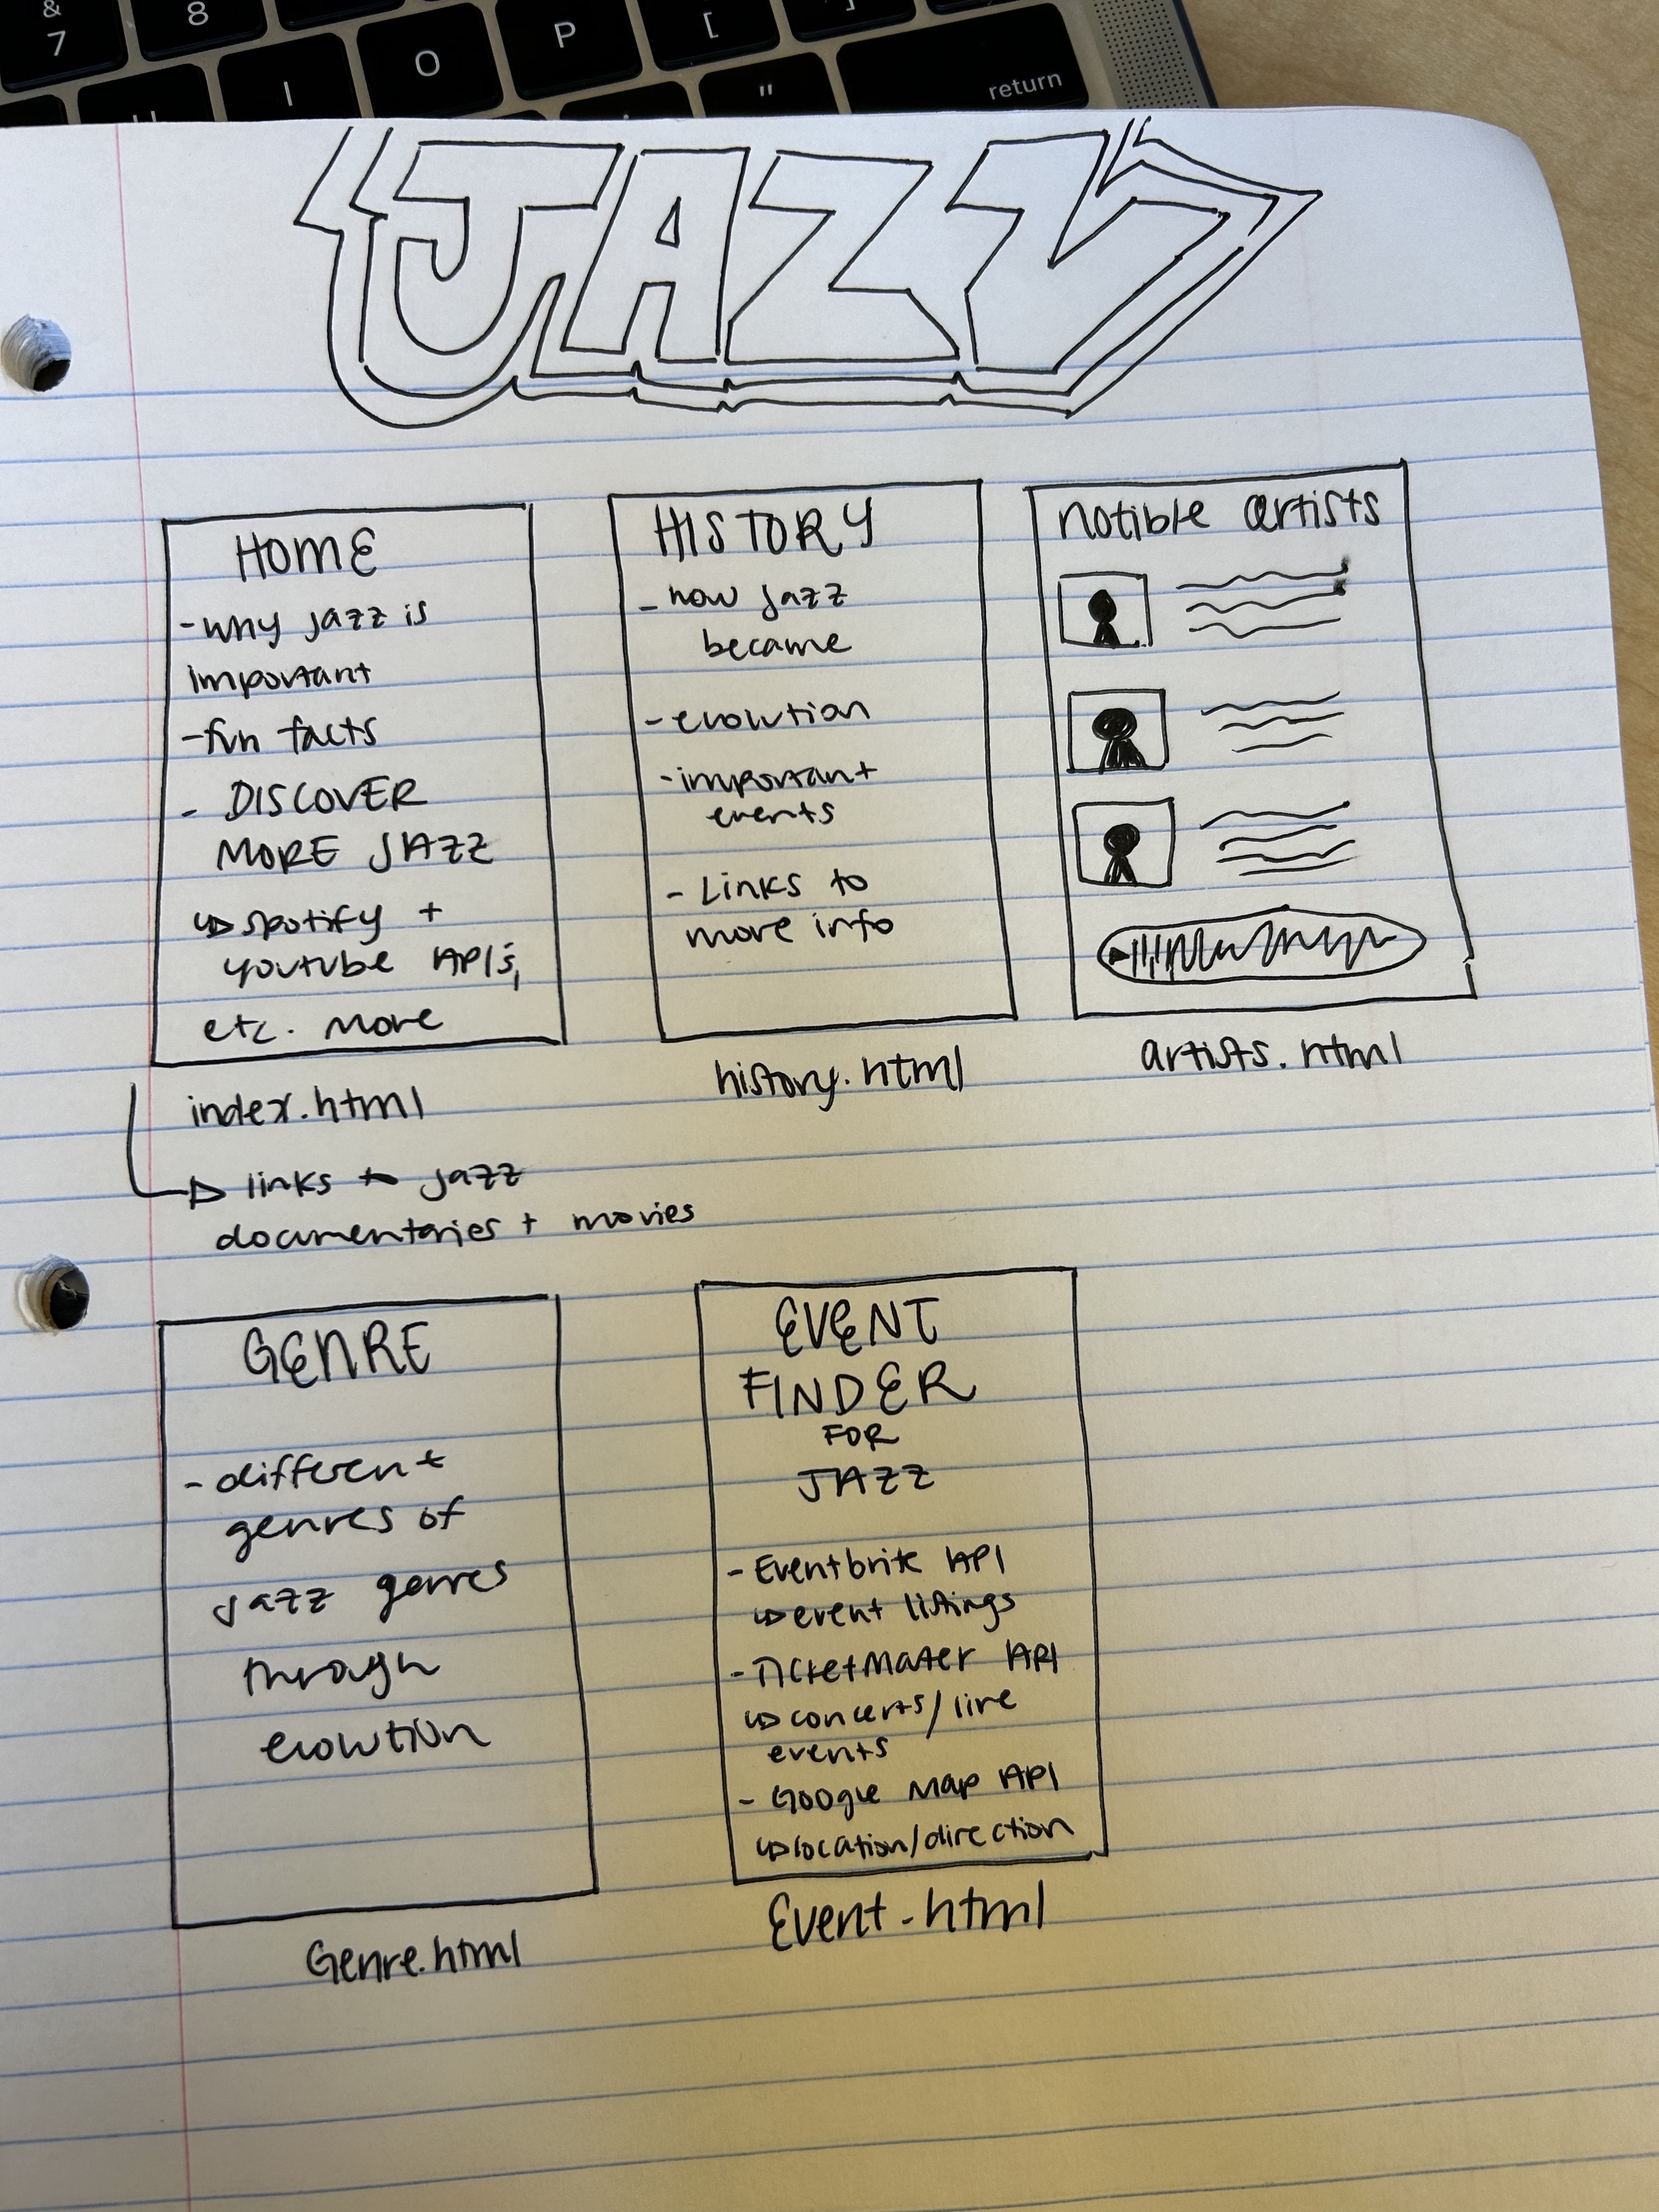 &
7
8
I
O
P
[
]
"
return
JAZZ
HOME
-why jazz is
important
-fun facts
- DISCOVER
MORE JAZZ
↳ spotify +
youtube API's,
etc. more
index.html
↳ links to jazz
documentaries + movies
HISTORY
- how jazz
became
- evolution
- important
events
- Links to
more info
history.html
notible artists
artists.html
GENRE
- different
genres of
jazz genres
through
evolution
Genre.html
EVENT
FINDER
FOR
JAZZ
- Eventbrite API
↳ event listings
- TicketMater API
↳ concerts/live
events
- Google Map API
↳ location/direction
Event.html